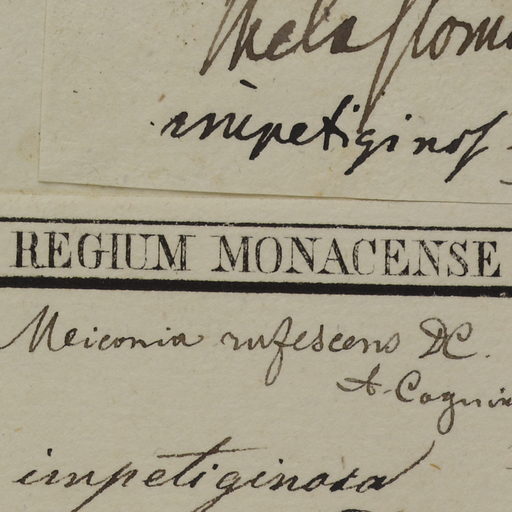 Melastom
impetiginos
REGIUM MONACENSE
Meiconia rufescens DC.
A. Cognix
impetiginosa